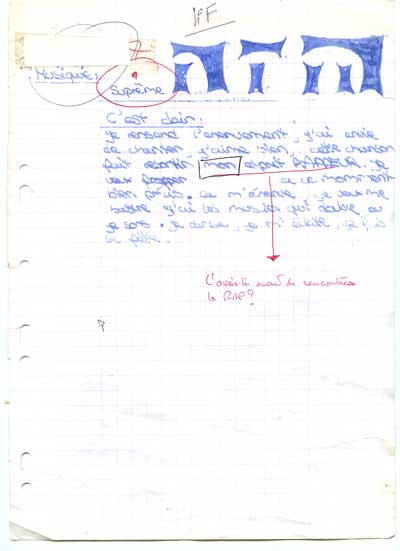 HiF
7
Musique:
Suprême
C'est clair:
je ressend l'énervement, j'ai envie
de chanter, j'aime bien, cette chanson
fait mon esprit RAPPEUR. je
veux Rapper ca ce momment
bien précis. ca m'énerve, je veux me
battre j'ai les muscles qui double ou
je sors. je danse, je m'éclate, je fais
la fête.
L'avais-tu avant de rencontrer
le RAP?